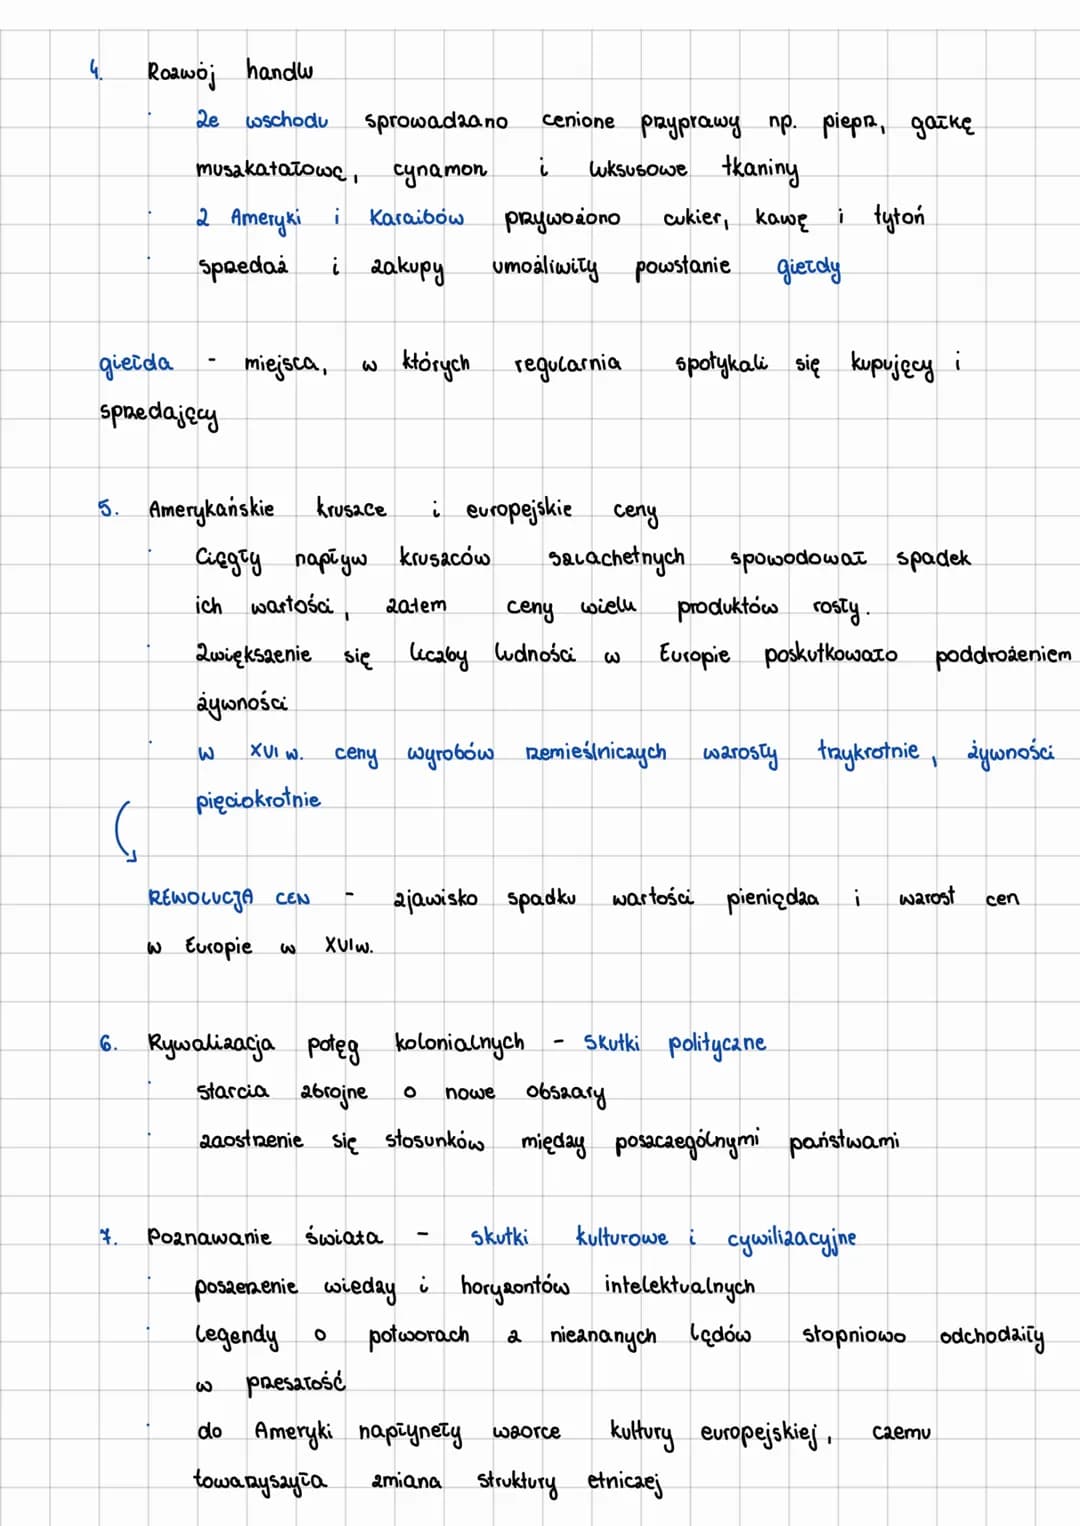 4. Rozwój handlu
· Ze wschodu sprowadzano cenione przyprawy np. pieprz, gałkę
muszkatałową, cynamon i luksusowe tkaniny
· Z Ameryki i Karaibów przywożono cukier, kawę i tytoń
· sprzedaż i zakupy umożliwiły powstanie giełdy
giełda - miejsca, w których regularnia spotykali się kupujący i
sprzedający
5. Amerykańskie kruszce i europejskie ceny
· Ciągły napływ kruszców szlachetnych spowodował spadek
ich wartości, zatem ceny wielu produktów rosły.
· Zwiększenie się liczby ludności w Europie poskutkowało poddrożeniem
żywności
· w XVI w. ceny wyrobów rzemieślniczych wzrosły trzykrotnie, żywności
pięciokrotnie
REWOLUCJA CEN - zjawisko spadku wartości pieniądza i wzrost cen
w Europie w XVI w.
6. Rywalizacja potęg kolonialnych - skutki polityczne
· starcia zbrojne o nowe obszary
· zaostrzenie się stosunków między poszczególnymi państwami
7. Poznawanie świata - skutki kulturowe i cywilizacyjne
· poszerzenie wiedzy i horyzontów intelektualnych
· legendy o potworach z nieznanych lądów stopniowo odchodziły
w przeszłość
· do Ameryki napłynęły wzorce kultury europejskiej, czemu
towarzyszyła zmiana struktury etniczej